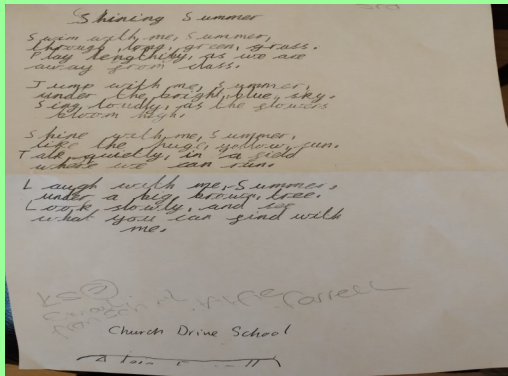 Shining Summer
Swim with me, Summer,
through, long, green, grass.
Play lengthily, as we are
away from class.
Jump with me, Summer,
under the, bright, blue, sky.
Sing, loudly, as the flowers
bloom high.
Shine with me, Summer,
like the huge, yellow, sun.
Talk, quietly, in a field
where we can run.
Laugh with me, Summer,
under a big, brown, tree.
Look, slowly, and see
what you can find with
me.
KS2
Church Drive School